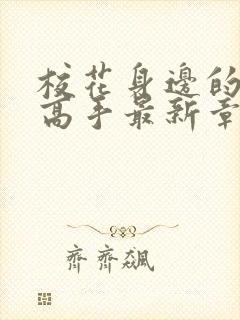 校花身邊的
高手最新章
齊齊飆